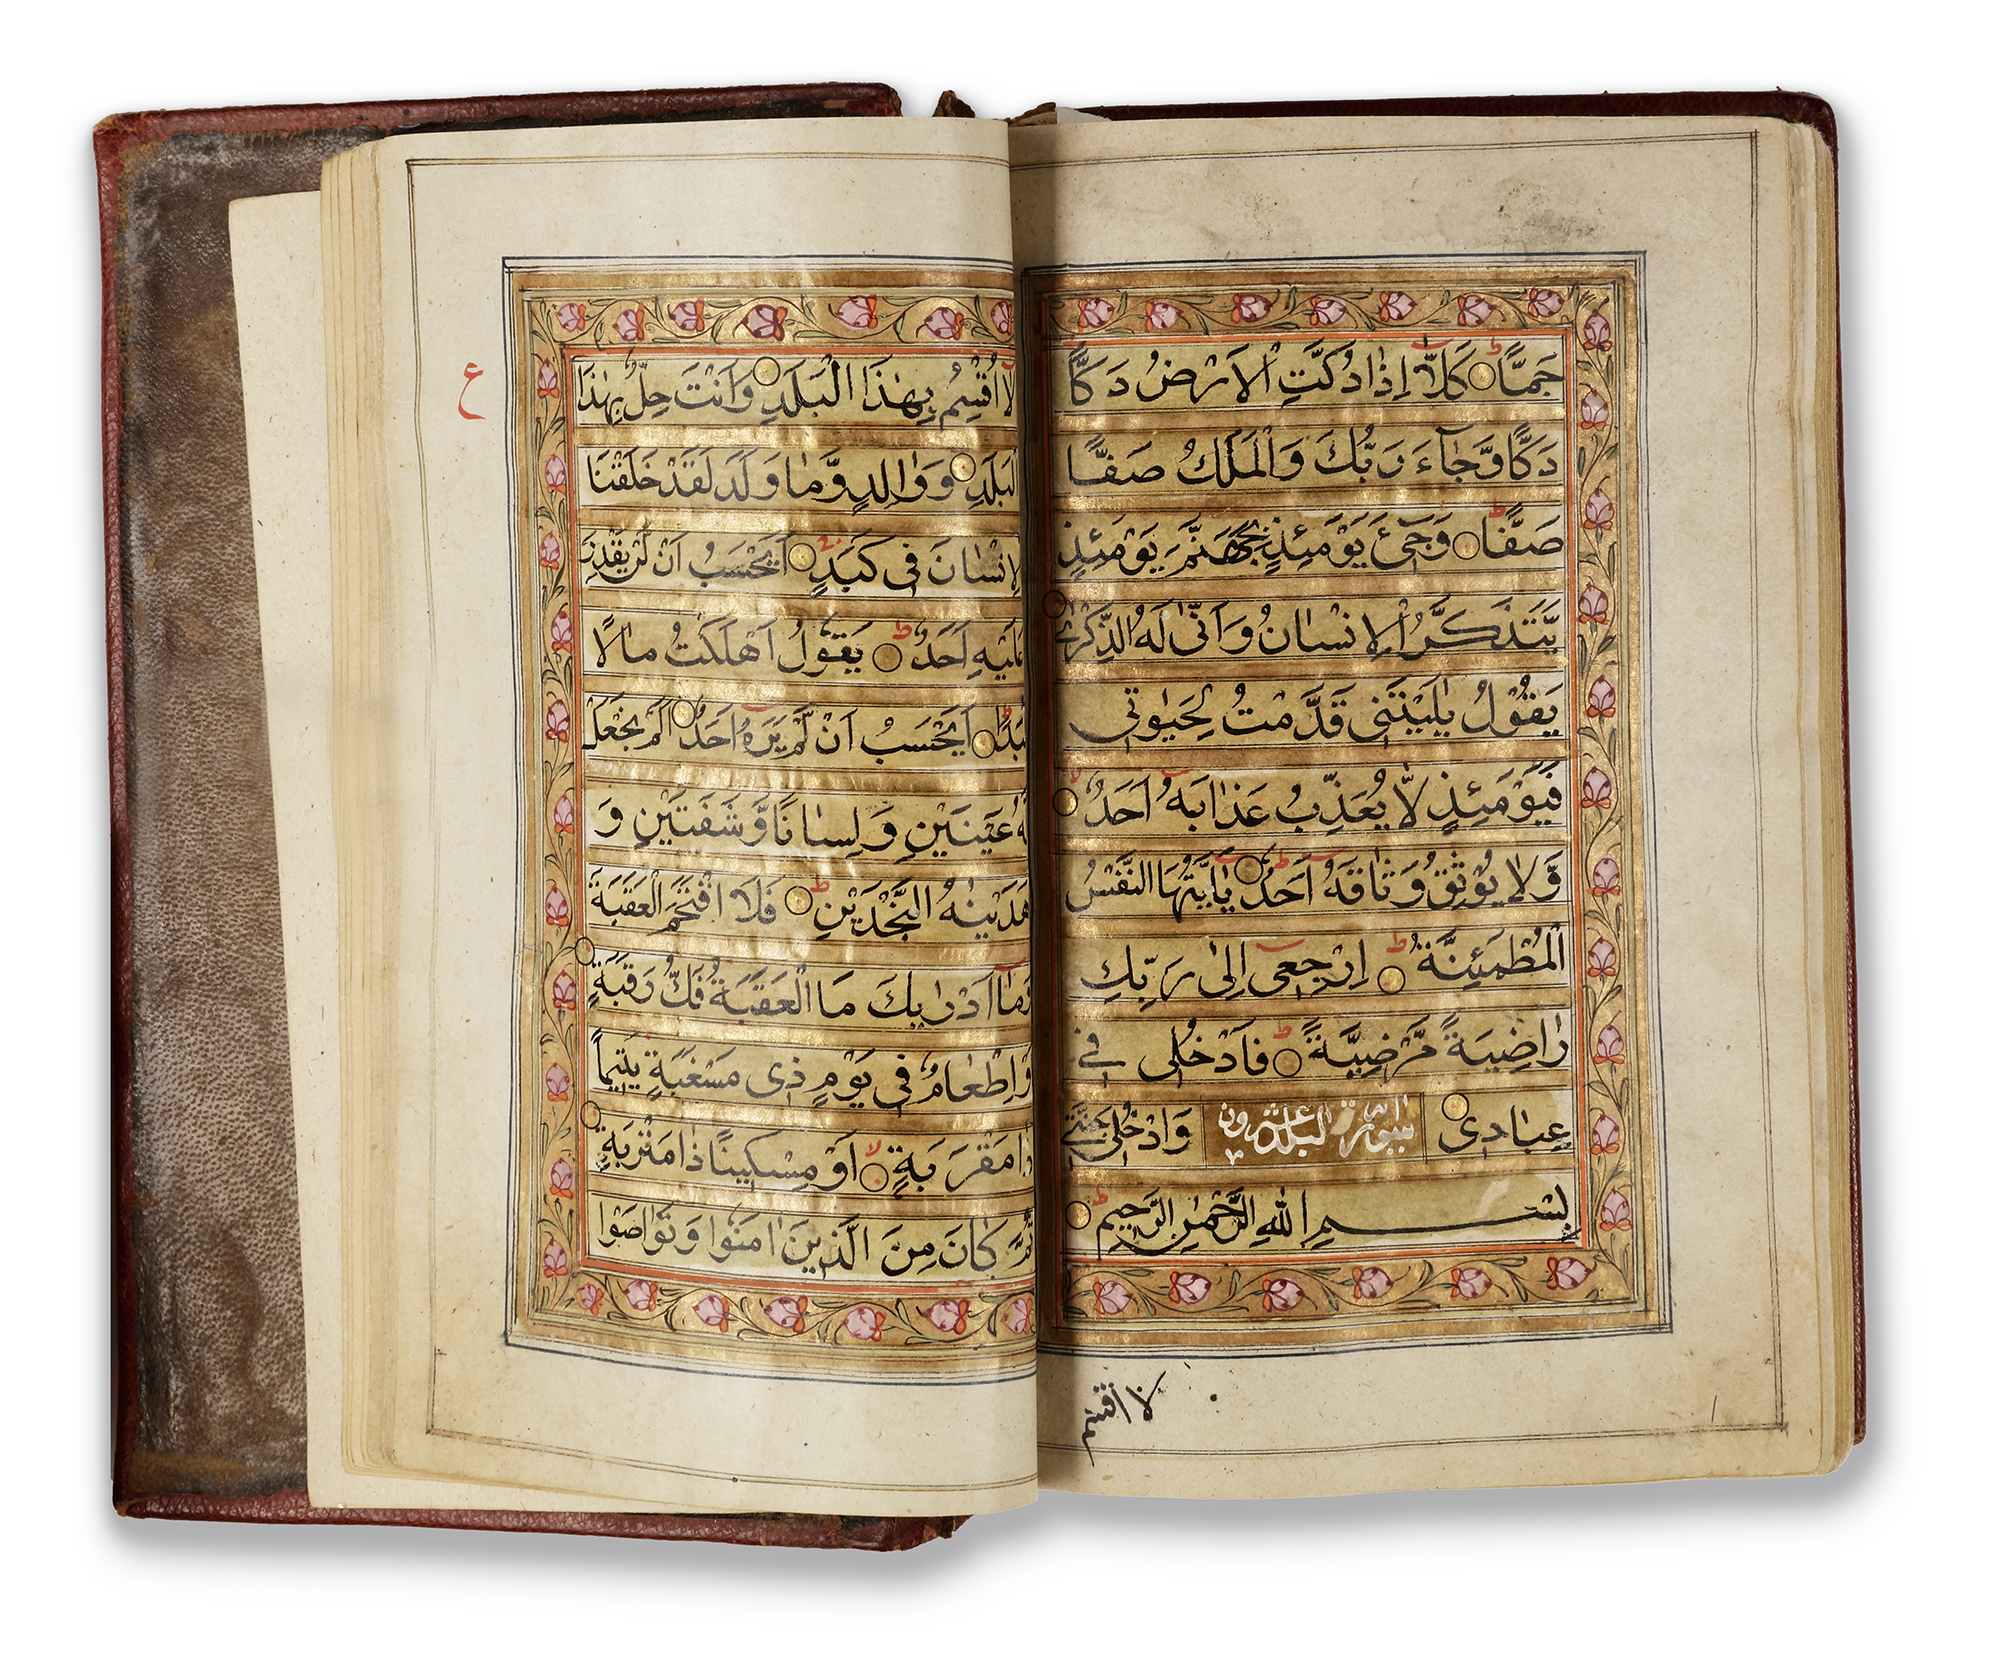 جَمًّا ط كَلَّآ اِذَا دُكَّتِ الْاَرْضُ دَكًّا
دَكًّا وَّجَآءَ رَبُّكَ وَالْمَلَكُ صَفًّا
صَفًّا ط وَجِيْٓءَ يَوْمَئِذٍ بِجَهَنَّمَ يَوْمَئِذٍ
يَّتَذَكَّرُ الْاِنْسَانُ وَاَنّٰى لَهُ الذِّكْرٰى
يَقُوْلُ يٰلَيْتَنِىْ قَدَّمْتُ لِحَيٰوتِىْ
فَيَوْمَئِذٍ لَّا يُعَذِّبُ عَذَابَهٗٓ اَحَدٌ لا
وَّلَا يُوْثِقُ وَثَاقَهٗٓ اَحَدٌ ط يٰٓاَيَّتُهَا النَّفْسُ
الْمُطْمَئِنَّةُ ط ارْجِعِىْٓ اِلٰى رَبِّكِ
رَاضِيَةً مَّرْضِيَّةً ط فَادْخُلِىْ فِىْ
عِبَادِىْ وَادْخُلِىْ جَنَّتِىْ
سورة البلد عشرون
بِسْمِ اللهِ الرَّحْمٰنِ الرَّحِيْمِ ط
لا اقسم
ع
لَآ اُقْسِمُ بِهٰذَا الْبَلَدِ وَاَنْتَ حِلٌّۢ بِهٰذَا
الْبَلَدِ وَوَالِدٍ وَّمَا وَلَدَ لَقَدْ خَلَقْنَا
الْاِنْسَانَ فِىْ كَبَدٍ اَيَحْسَبُ اَنْ لَّنْ يَّقْدِرَ
عَلَيْهِ اَحَدٌ ط يَقُوْلُ اَهْلَكْتُ مَالًا
لُّبَدًا ط اَيَحْسَبُ اَنْ لَّمْ يَرَهٗٓ اَحَدٌ اَلَمْ نَجْعَلْ
لَّهٗ عَيْنَيْنِ وَلِسَانًا وَّشَفَتَيْنِ وَ
هَدَيْنٰهُ النَّجْدَيْنِ ط فَلَا اقْتَحَمَ الْعَقَبَةَ
وَمَآ اَدْرٰىكَ مَا الْعَقَبَةُ فَكُّ رَقَبَةٍ
اَوْ اِطْعَامٌ فِىْ يَوْمٍ ذِىْ مَسْغَبَةٍ يَّتِيْمًا
ذَا مَقْرَبَةٍ لا اَوْ مِسْكِيْنًا ذَا مَتْرَبَةٍ
ثُمَّ كَانَ مِنَ الَّذِيْنَ اٰمَنُوْا وَتَوَاصَوْا